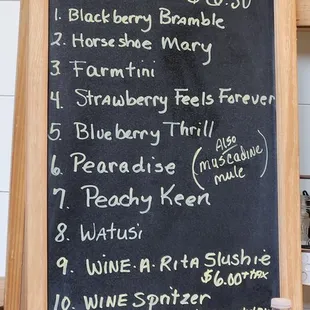 1. Blackberry Bramble
2. Horseshoe Mary
3. Farmtini
4. Strawberry Feels Forever
5. Blueberry Thrill
6. Pearadise (Also muscadine mule)
7. Peachy Keen
8. WATUSI
9. WINE-A-RITA Slushie
$6.00 + TAX
10. WINE Spritzer